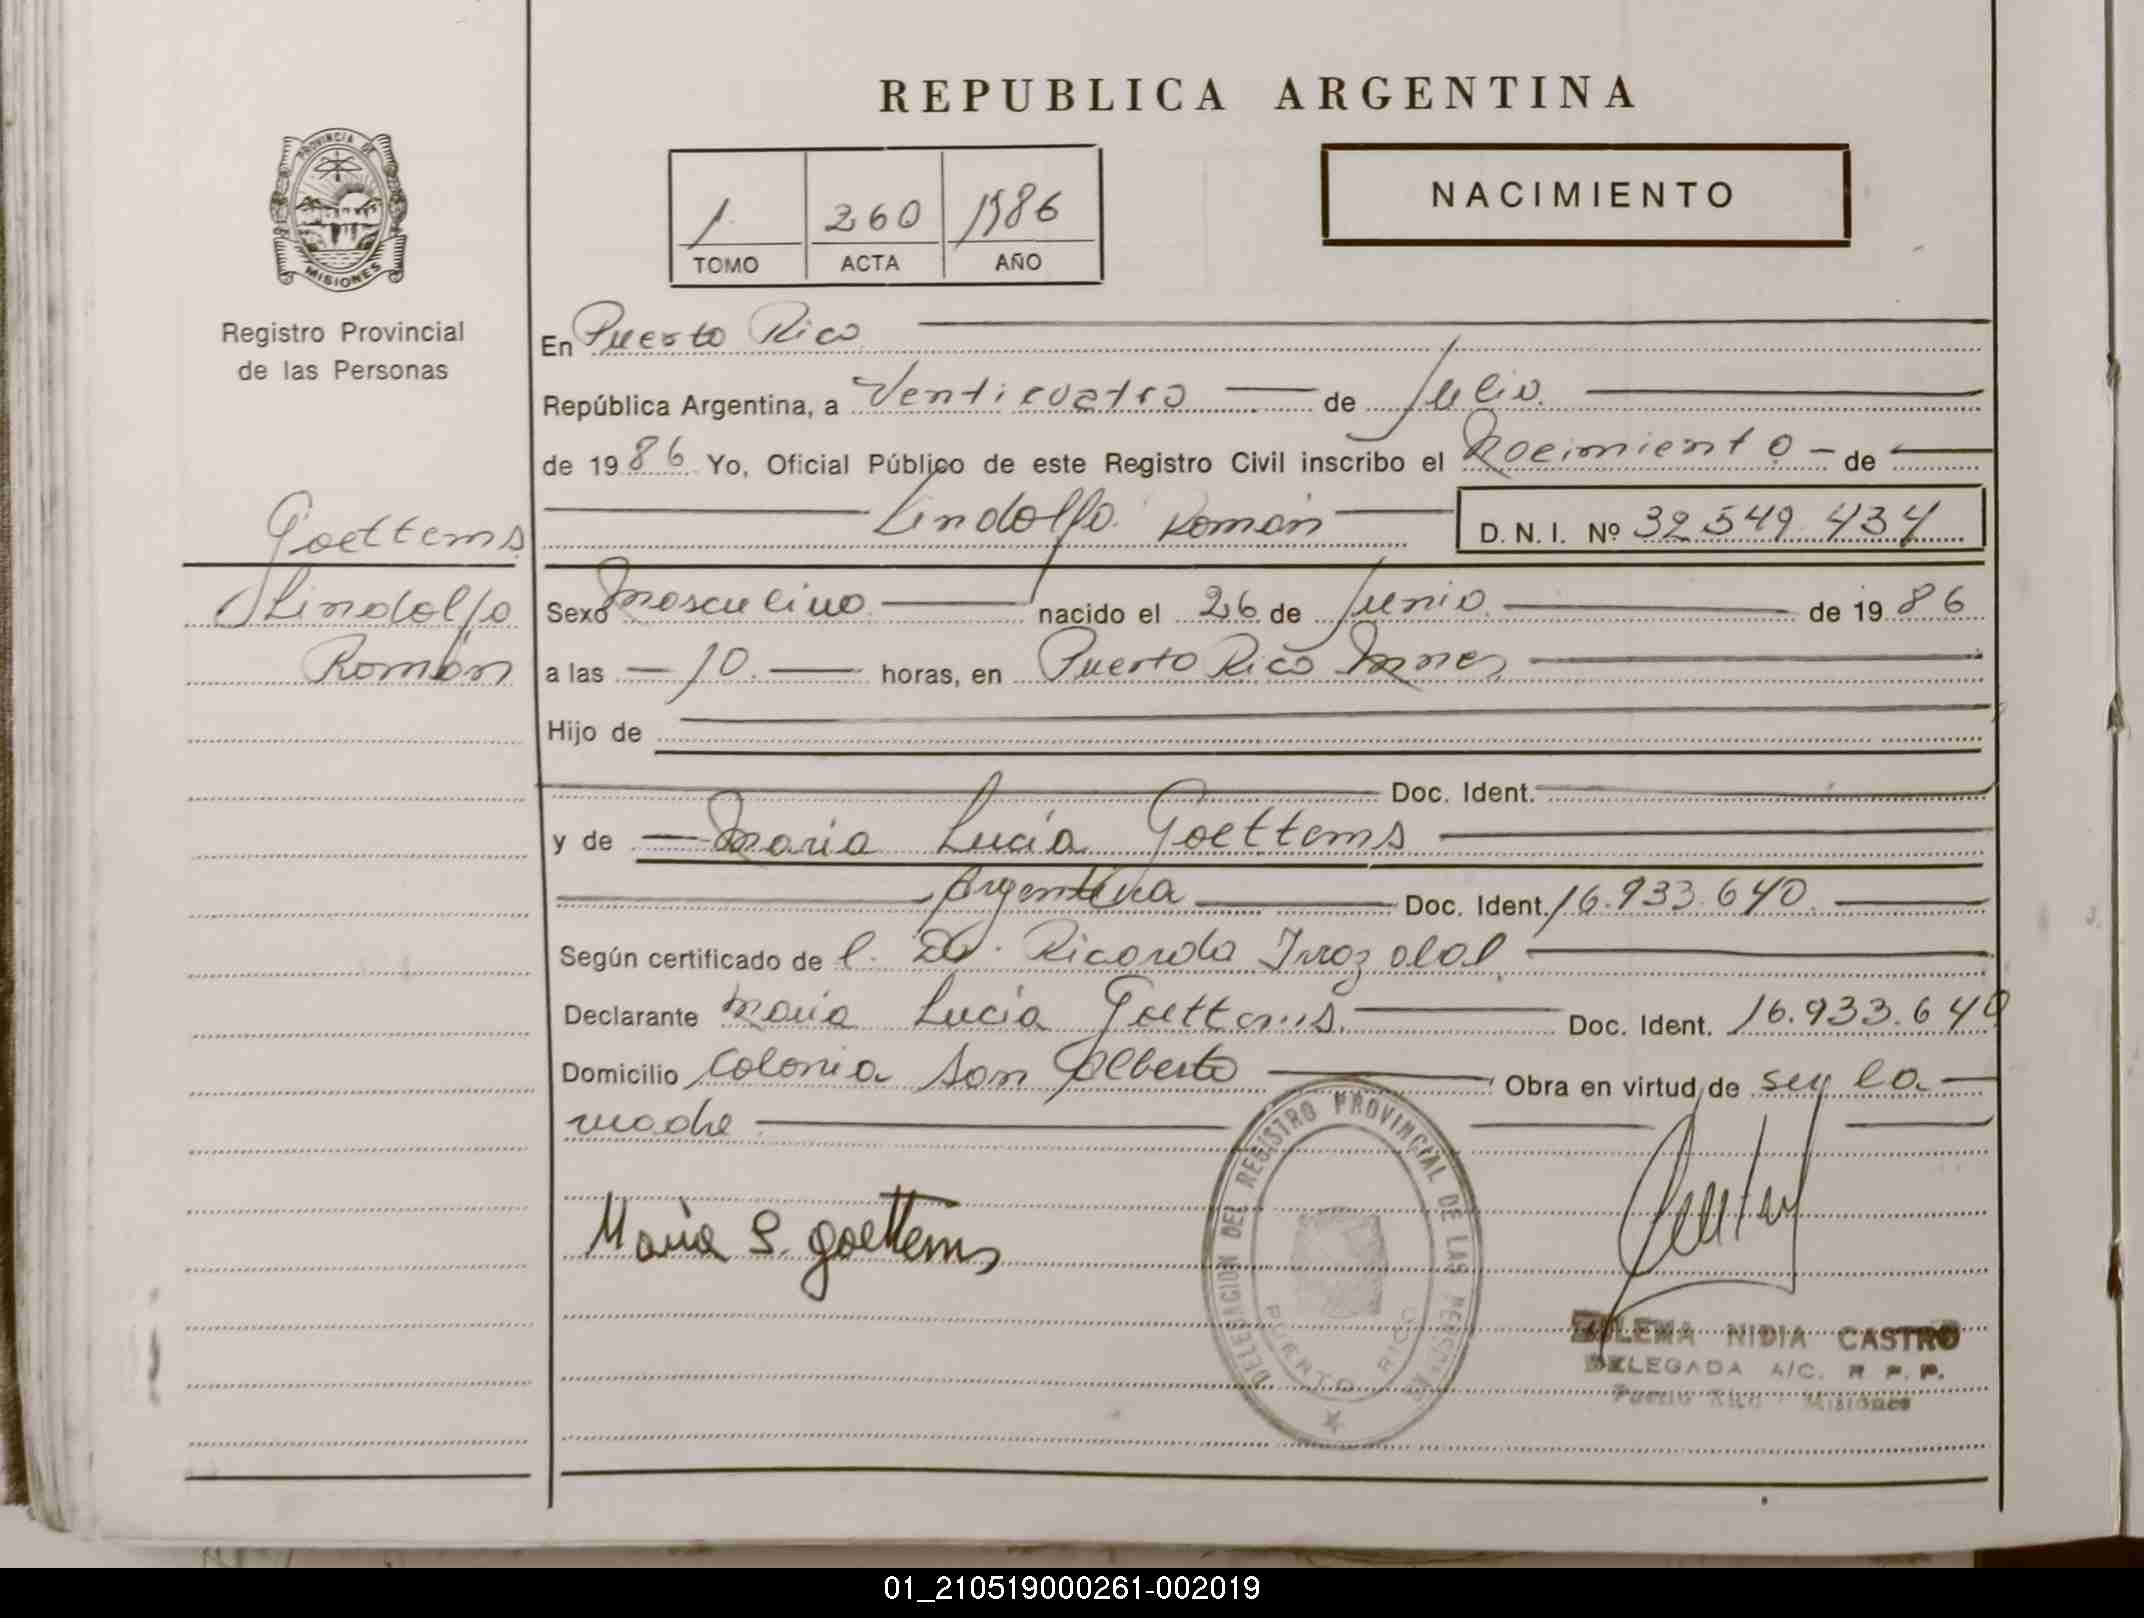 REPUBLICA ARGENTINA
PROVINCIA DE
MISIONES
Registro Provincial
de las Personas
1 260 1986
TOMO ACTA AÑO
NACIMIENTO
En Puerto Rico
República Argentina, a Venticuatro de Julio
de 1986 Yo, Oficial Público de este Registro Civil inscribo el Nacimiento de
Lindolfo Román D. N. I. Nº 32.549.434
Goettems
Lindolfo
Román
Sexo Masculino nacido el 26 de Junio de 1986
a las 10 horas, en Puerto Rico Mnes
Hijo de
Doc. Ident.
y de Maria Lucía Goettems
Argentina Doc. Ident. 16.933.640
Según certificado de l. Dr. Ricardo
Declarante Maria Lucía Goettems Doc. Ident. 16.933.640
Domicilio Colonia San Alberto Obra en virtud de ser la
madre
Maria L. goettems
DELEGACION DEL REGISTRO PROVINCIAL DE LAS PERSONAS
PUERTO RICO
ZULEMA NIDIA CASTRO
DELEGADA A/C. R P. P.
Puerto Rico - Misiones
01_210519000261-002019